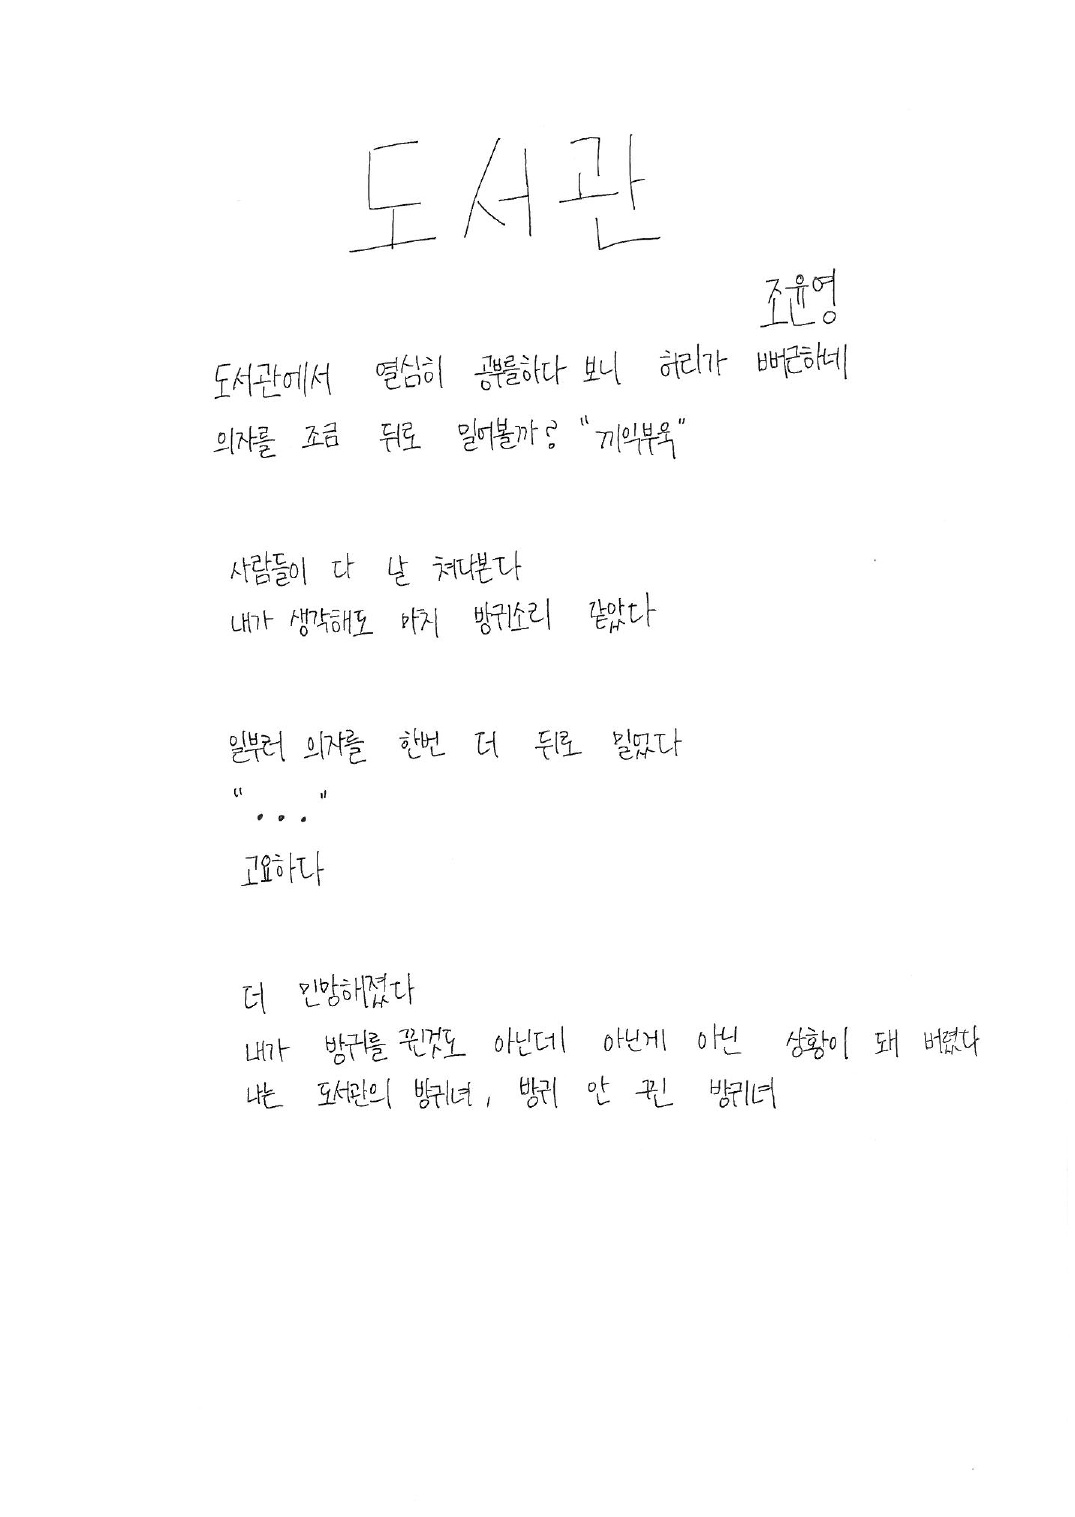 도서관
조윤영
도서관에서 열심히 공부를하다 보니 허리가 뻐근하네
의자를 조금 뒤로 밀어볼까? "끼익부욱"
사람들이 다 날 쳐다본다
내가 생각해도 마치 방귀소리 같았다
일부러 의자를 한번 더 뒤로 밀었다
"..."
고요하다
더 민망해졌다
내가 방귀를 뀐것도 아닌데 아닌게 아닌 상황이 돼 버렸다
나는 도서관의 방귀녀, 방귀 안 뀐 방귀녀